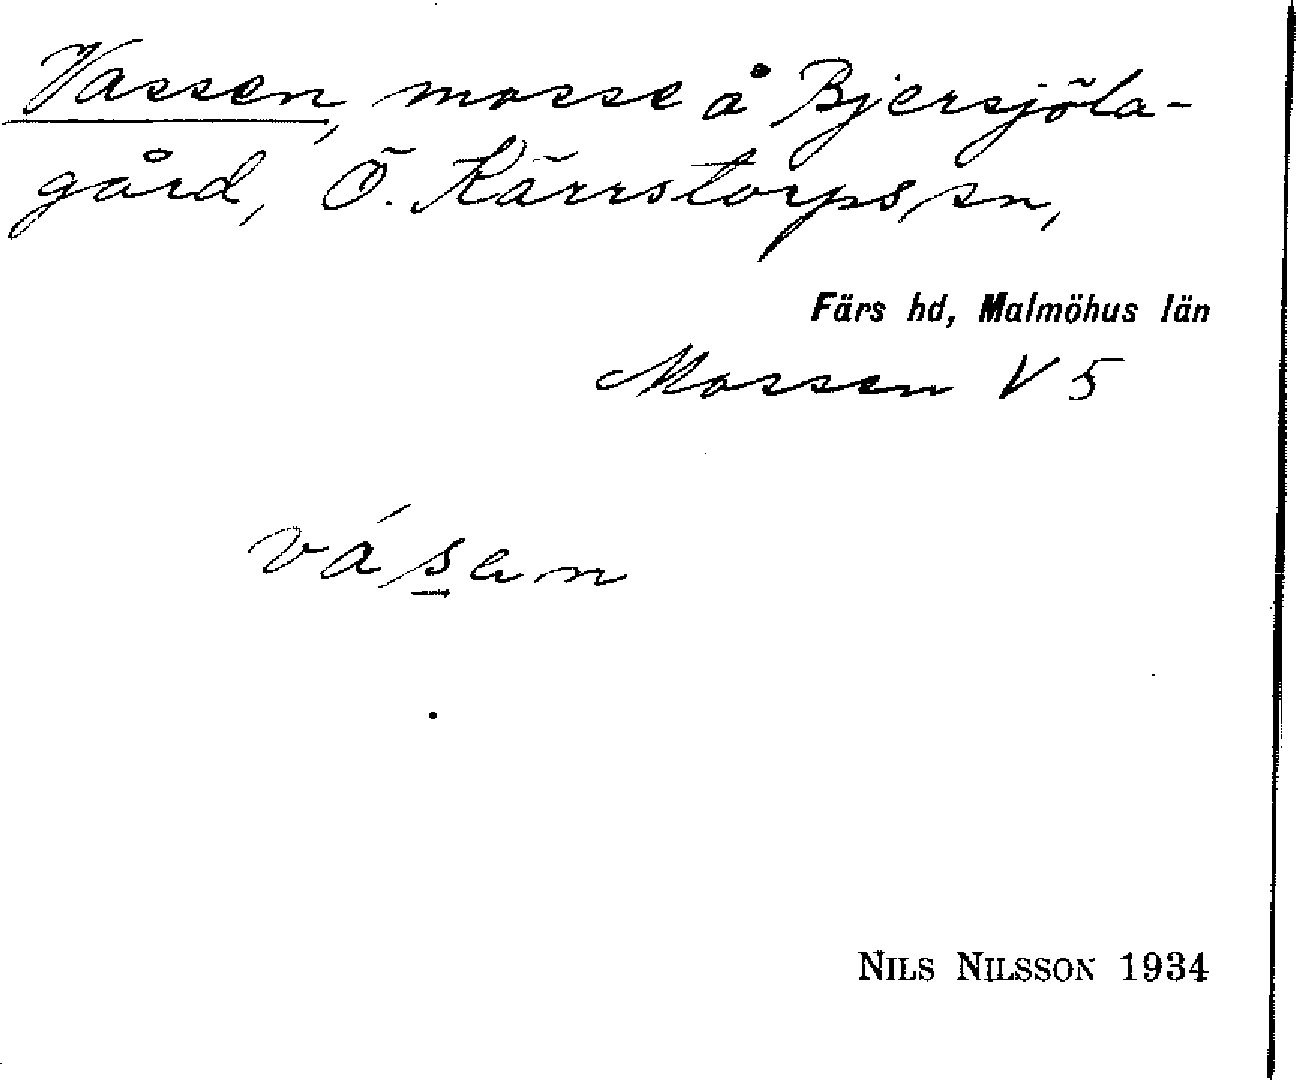 Vassen, mosse å Bjersjöla-
gård, Ö. Kärrstorps sn,
Färs hd, Malmöhus län
Mossen V 5
vásen
NILS NILSSON 1934